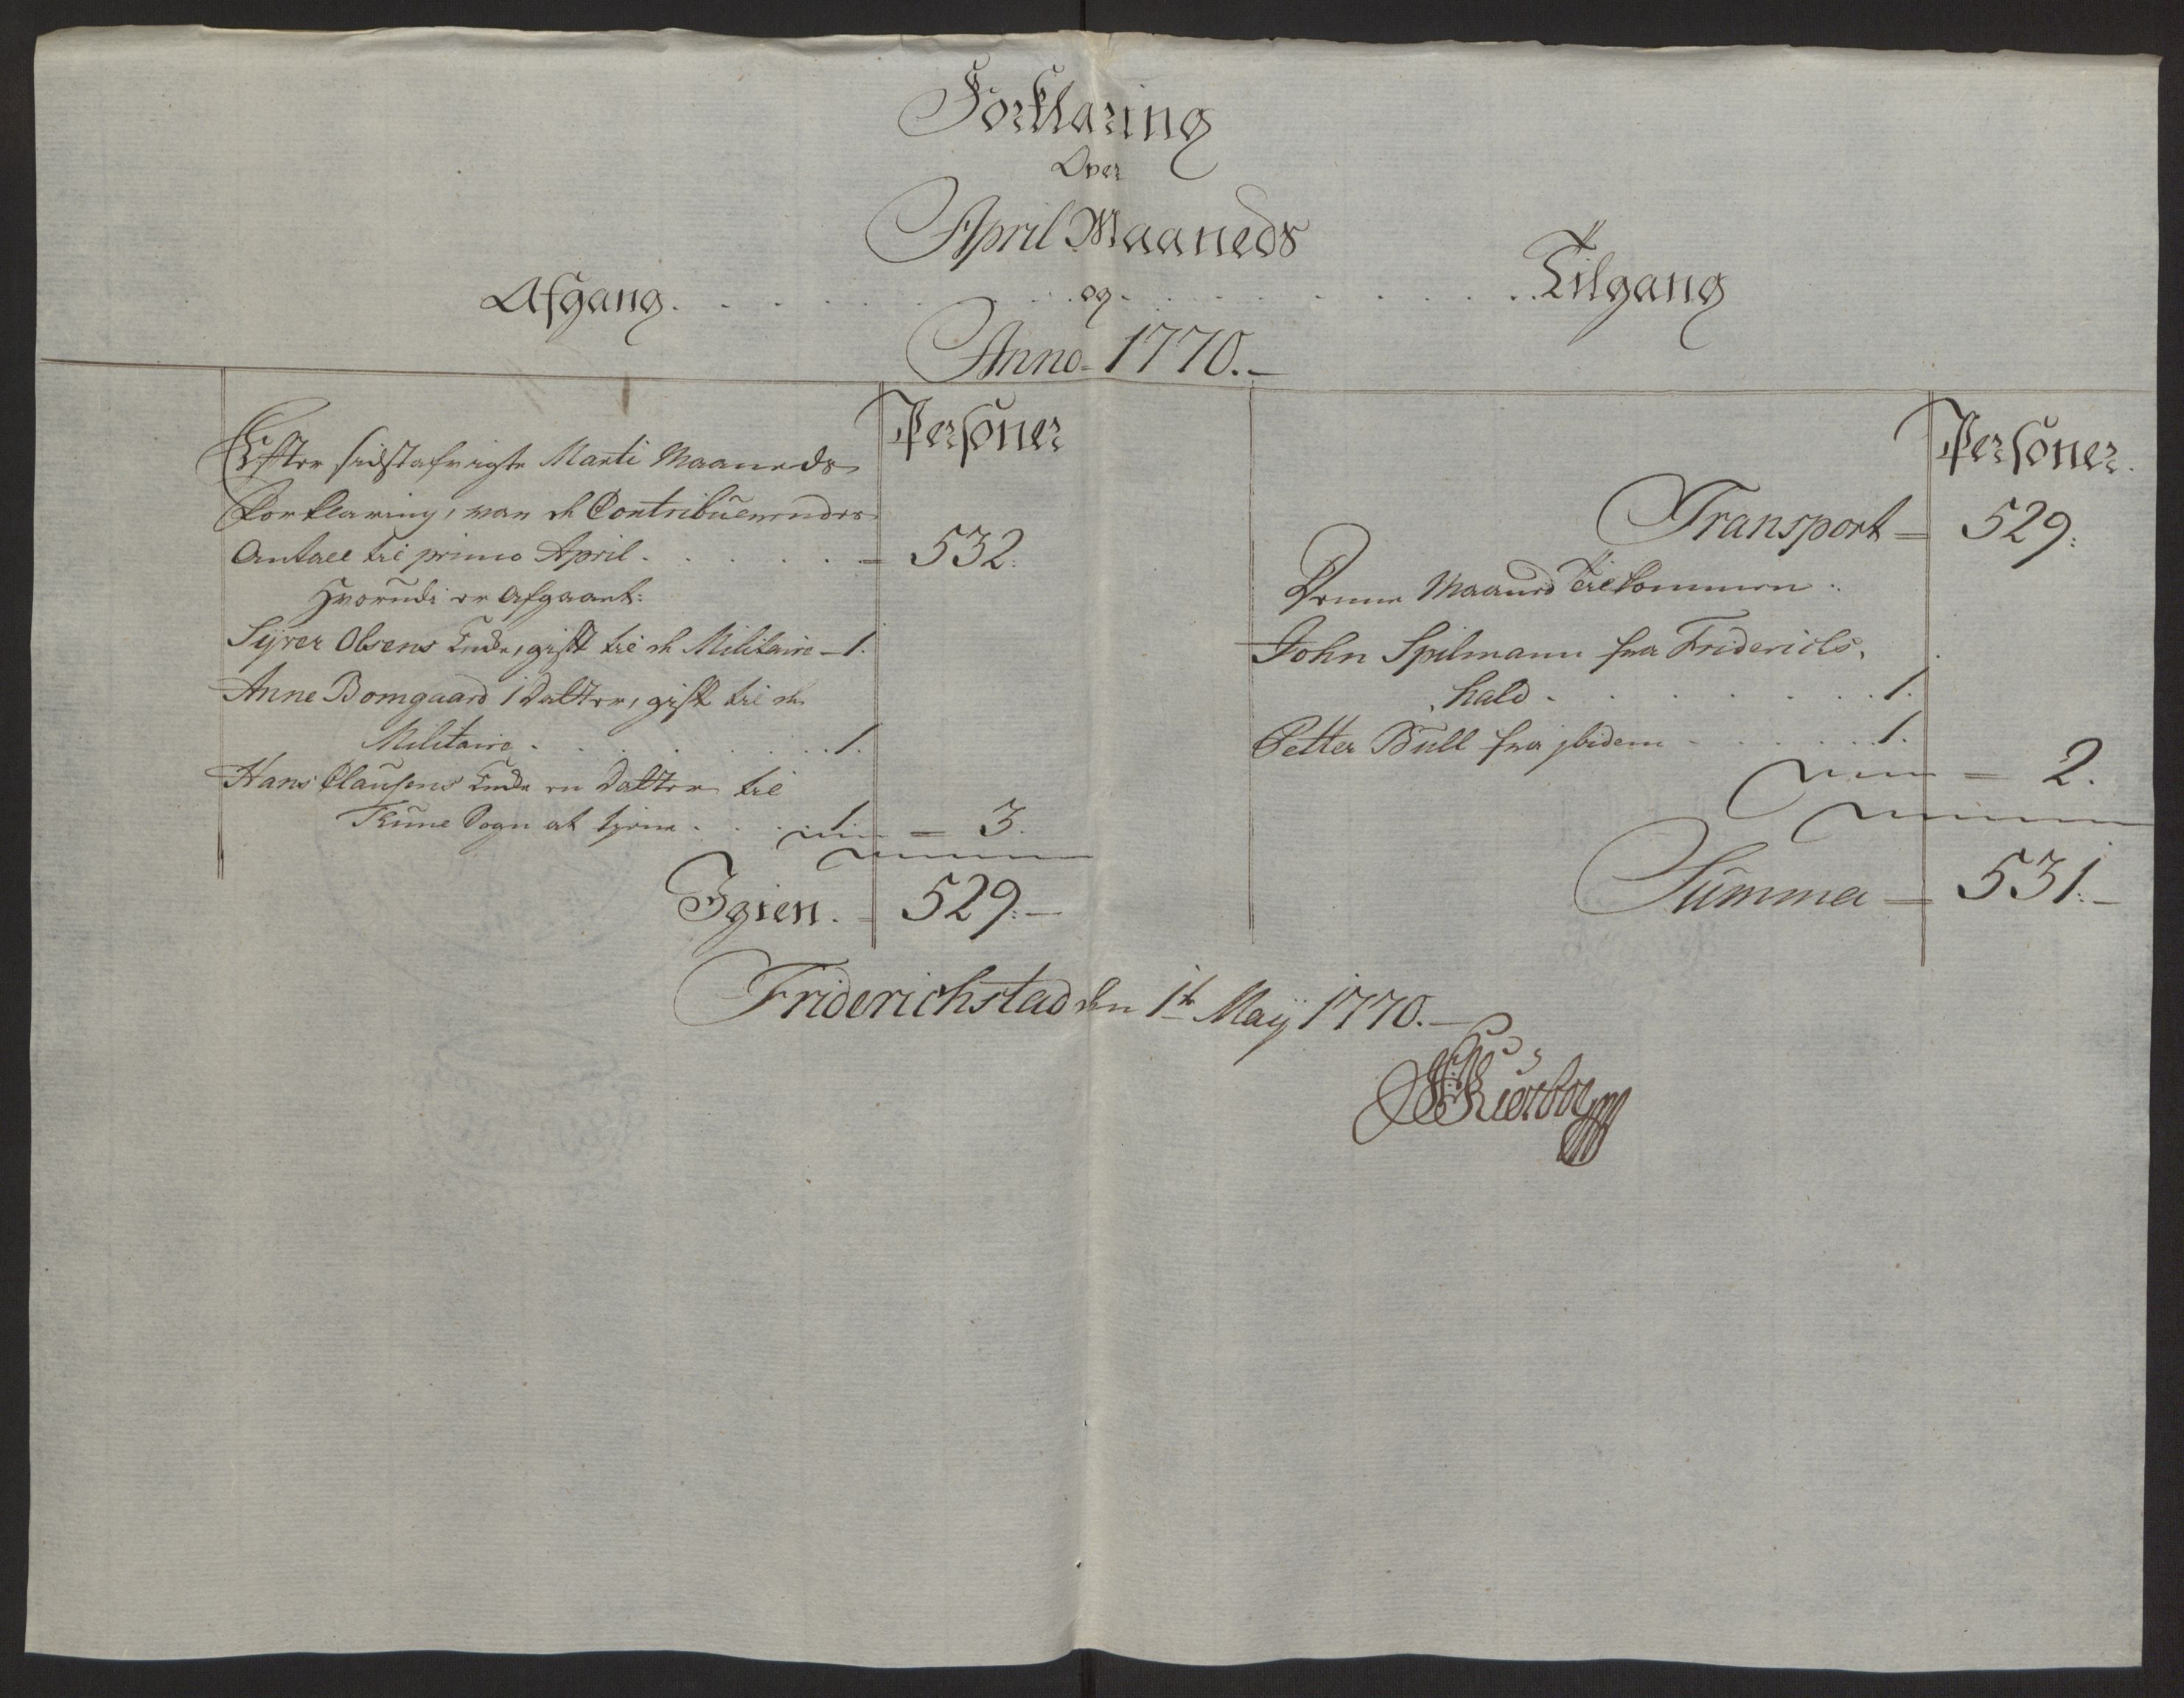 Forklaring
Over
April Maaneds
Afgang . . . og . . . Tilgang
Anno 1770.
Personer
Efter sidstafvigte Marti Maaneds
Forklaring, var de Contribuerendes
Antall til primo April . . . = 532.
Hvorudi er Afgaaet:
Syver Olsens Enke, gift til de Militaire - 1.
Anne Bomgaard 1 Datter, gift til de
Militaire . . . 1.
Hans Clausens Enke en Datter til
Tune Sogn at tiene . . . 1. = 3.
Igien. = 529.
Personer.
Transport = 529.
Denne Maaned Tilkommen.
John Spilmann fra Friderichs-
hald . . . 1.
Petter Bull fra ibidem . . . 1.
= 2.
Summa = 531.
Friderichstad den 1te Maij 1770.